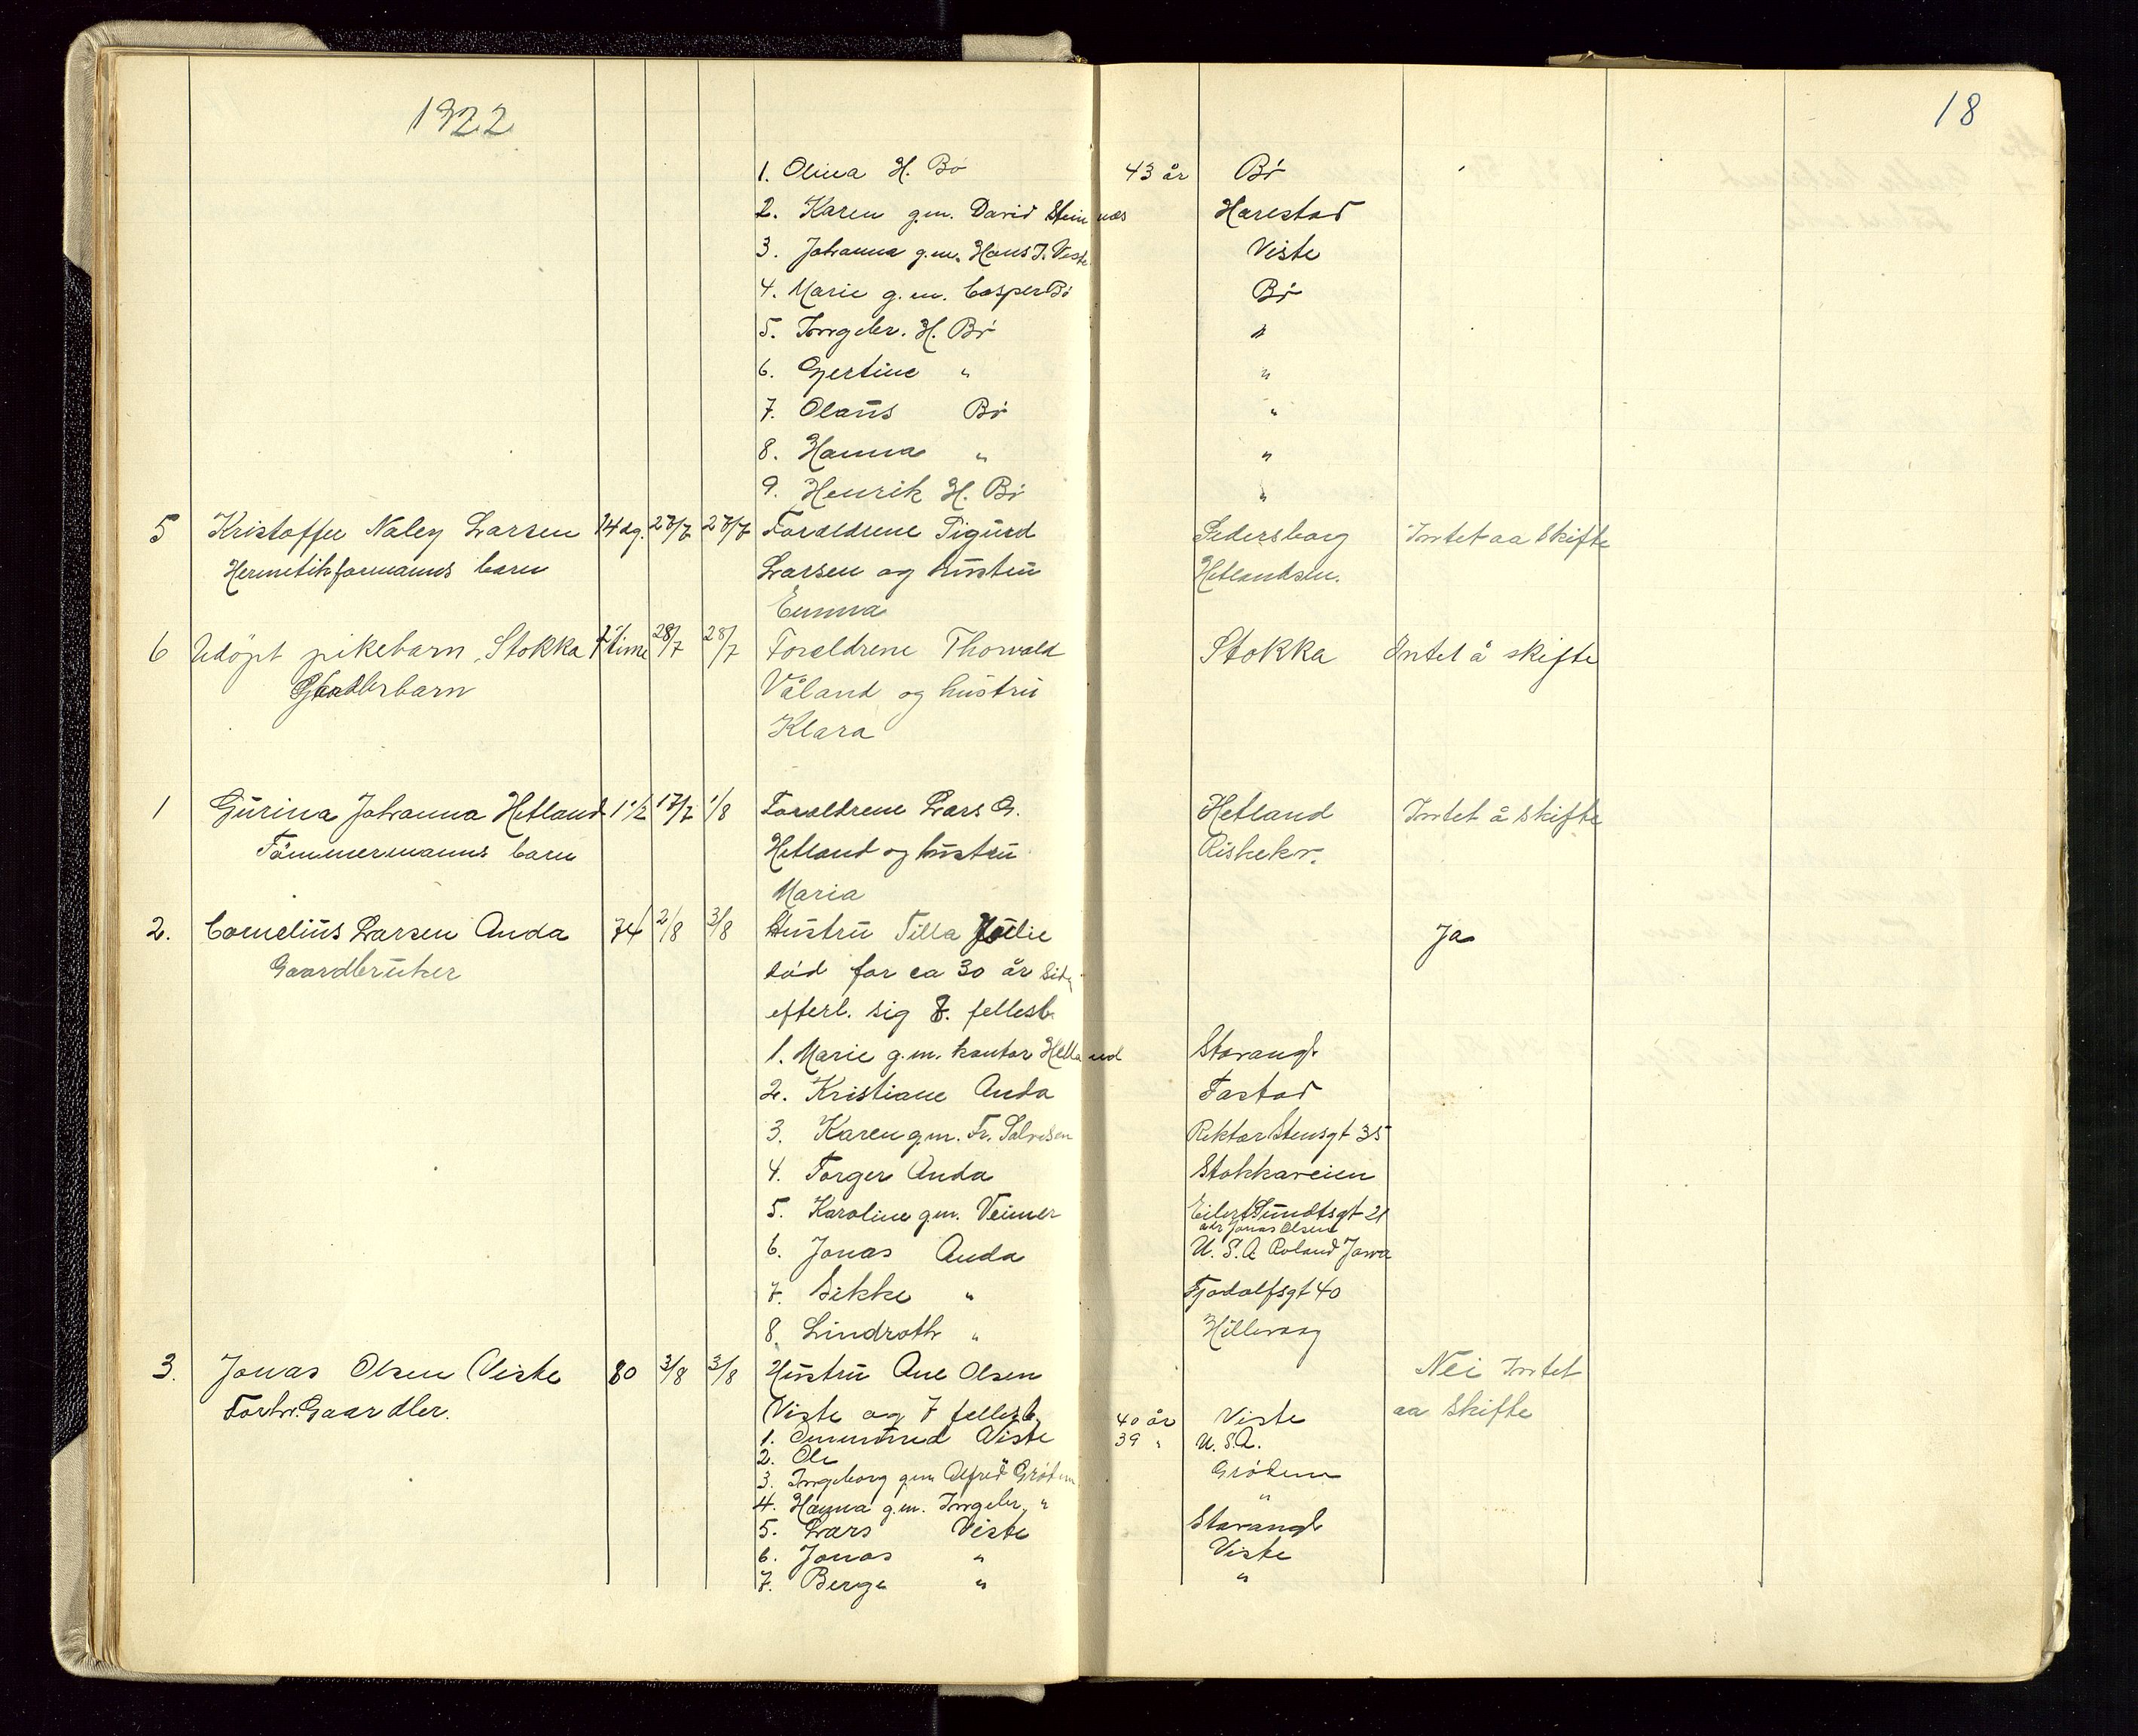 1922
18
1. Olina H. Bø 43 år Bø
2. Karen g.m. David Steinnes Harestad
3. Johanna g.m. Hans J. Viste Viste
4. Marie g.m. Casper Bø Bø
5. Ingebr. H. Bø "
6. Gjertine " "
7. Olaus Bø "
8. Hanna " "
9. Henrik H. Bø "
5 Kristoffer Naley Larsen 14 dg. 27/7 27/7 Forældrene Sigurd Pedersborg Intet aa skifte
Hermetikformanns barn Larsen og hustru Hetlandsm.
Emma
6 Udöpt pikebarn, Stokka time 28/7 28/7 Foreldrene Thorvald Stokka Intet å skifte
Våland og hustru
Klara
1 Gurina Johanna Hetland 1 1/2 17/7 1/8 Foreldrene Lars G. Hetland Intet å skifte
Tömmermanns barn Hetland og hustru Riskekv.
Maria
2. Cornelius Larsen Anda 74 2/8 3/8 Hustru Tilla Julie Ja
Gaardbruker død for ca 30 år siden
efterl. sig 8. fellesb.
1. Marie g.m. kantor Helland Stavanger
2. Kristiane Anda Tastad
3. Karen g.m. Fr. Salvesen Rektor Stensgt 35
4. Torger Anda Stokkaveien
5. Karoline g.m. Veimer Eilert Sundtsgt 21
adr Jonas Olsen
6. Jonas Anda U.S.A. Roland Jowa
7. Sikke " Tjodolfsgt 40
8. Lindroth " Hillevaag
3. Jonas Olsen Viste 80 3/8 3/8 Hustru Ane Olsen Nei Intet
Forhv. Gaardbr. Viste og 7 fellesb. aa skifte
1. Viste 40 år Viste
2. Ole 39 " U.S.A.
3. Ingeborg g.m. Alfred Grödem Grödem
4. Hanna g.m. Ingebr. " "
5. Lars Viste Stavanger
6. Jonas " Viste
7. Berge " "